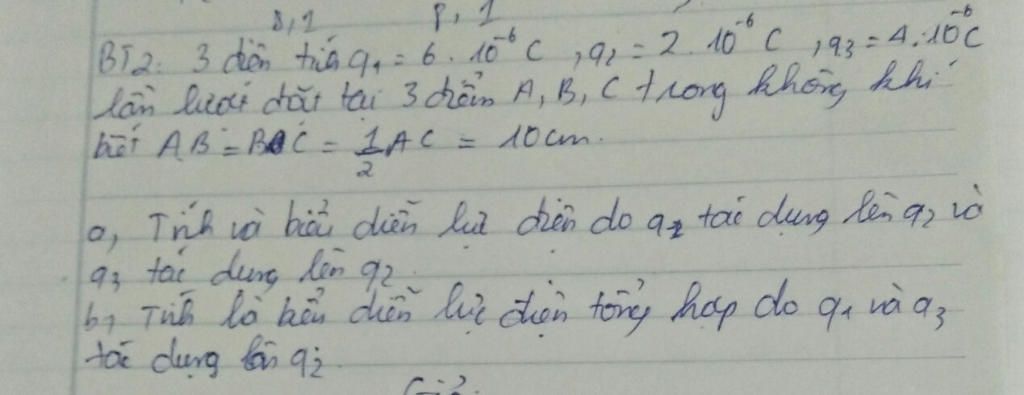 8,1 P, 1
BT2: 3 điện tích q₁ = 6 . 10⁻⁶ C , q₂ = 2 . 10⁻⁶ C , q₃ = 4 . 10⁻⁶ C
lần lượt đặt tại 3 điểm A, B, C trong không khí
biết AB = BC = 1/2 AC = 10cm.
a, Tính và biểu diễn lực điện do q₁ tác dụng lên q₂ và
q₃ tác dụng lên q₂.
b, Tính là biểu diễn lực điện tổng hợp do q₁ và q₃
tác dụng lên q₂.